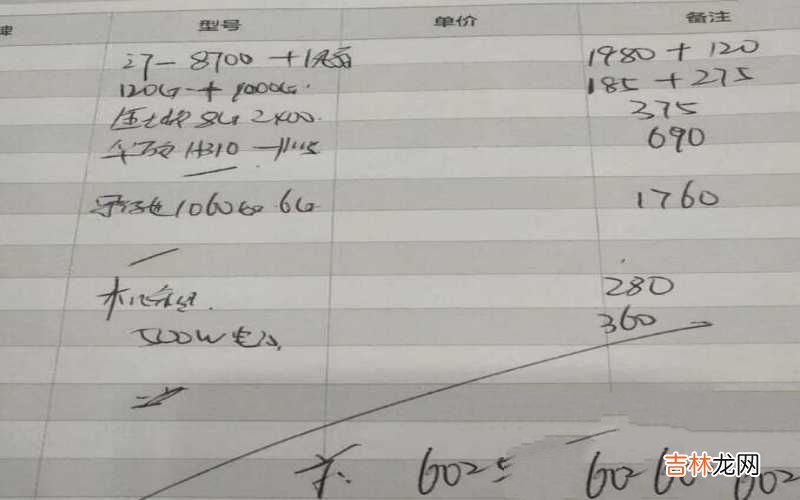 型号 单价 备注
i7-8700 + 1风扇 1980 + 120
120G + 1000G. 185 + 275
8G 2400. 375
华硕 H310 690
1060 6G 1760
机箱 280
500W 电源 360
共: 6025 60
吉林龙网